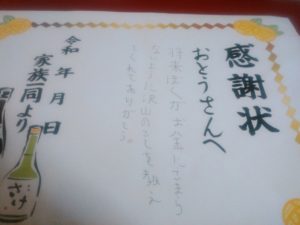 感謝状
おとうさんへ
将来ぼくがお金にこまら
ないように沢山のことを教え
てくれてありがとう。
令和 年 月 日
家族一同より
さけ